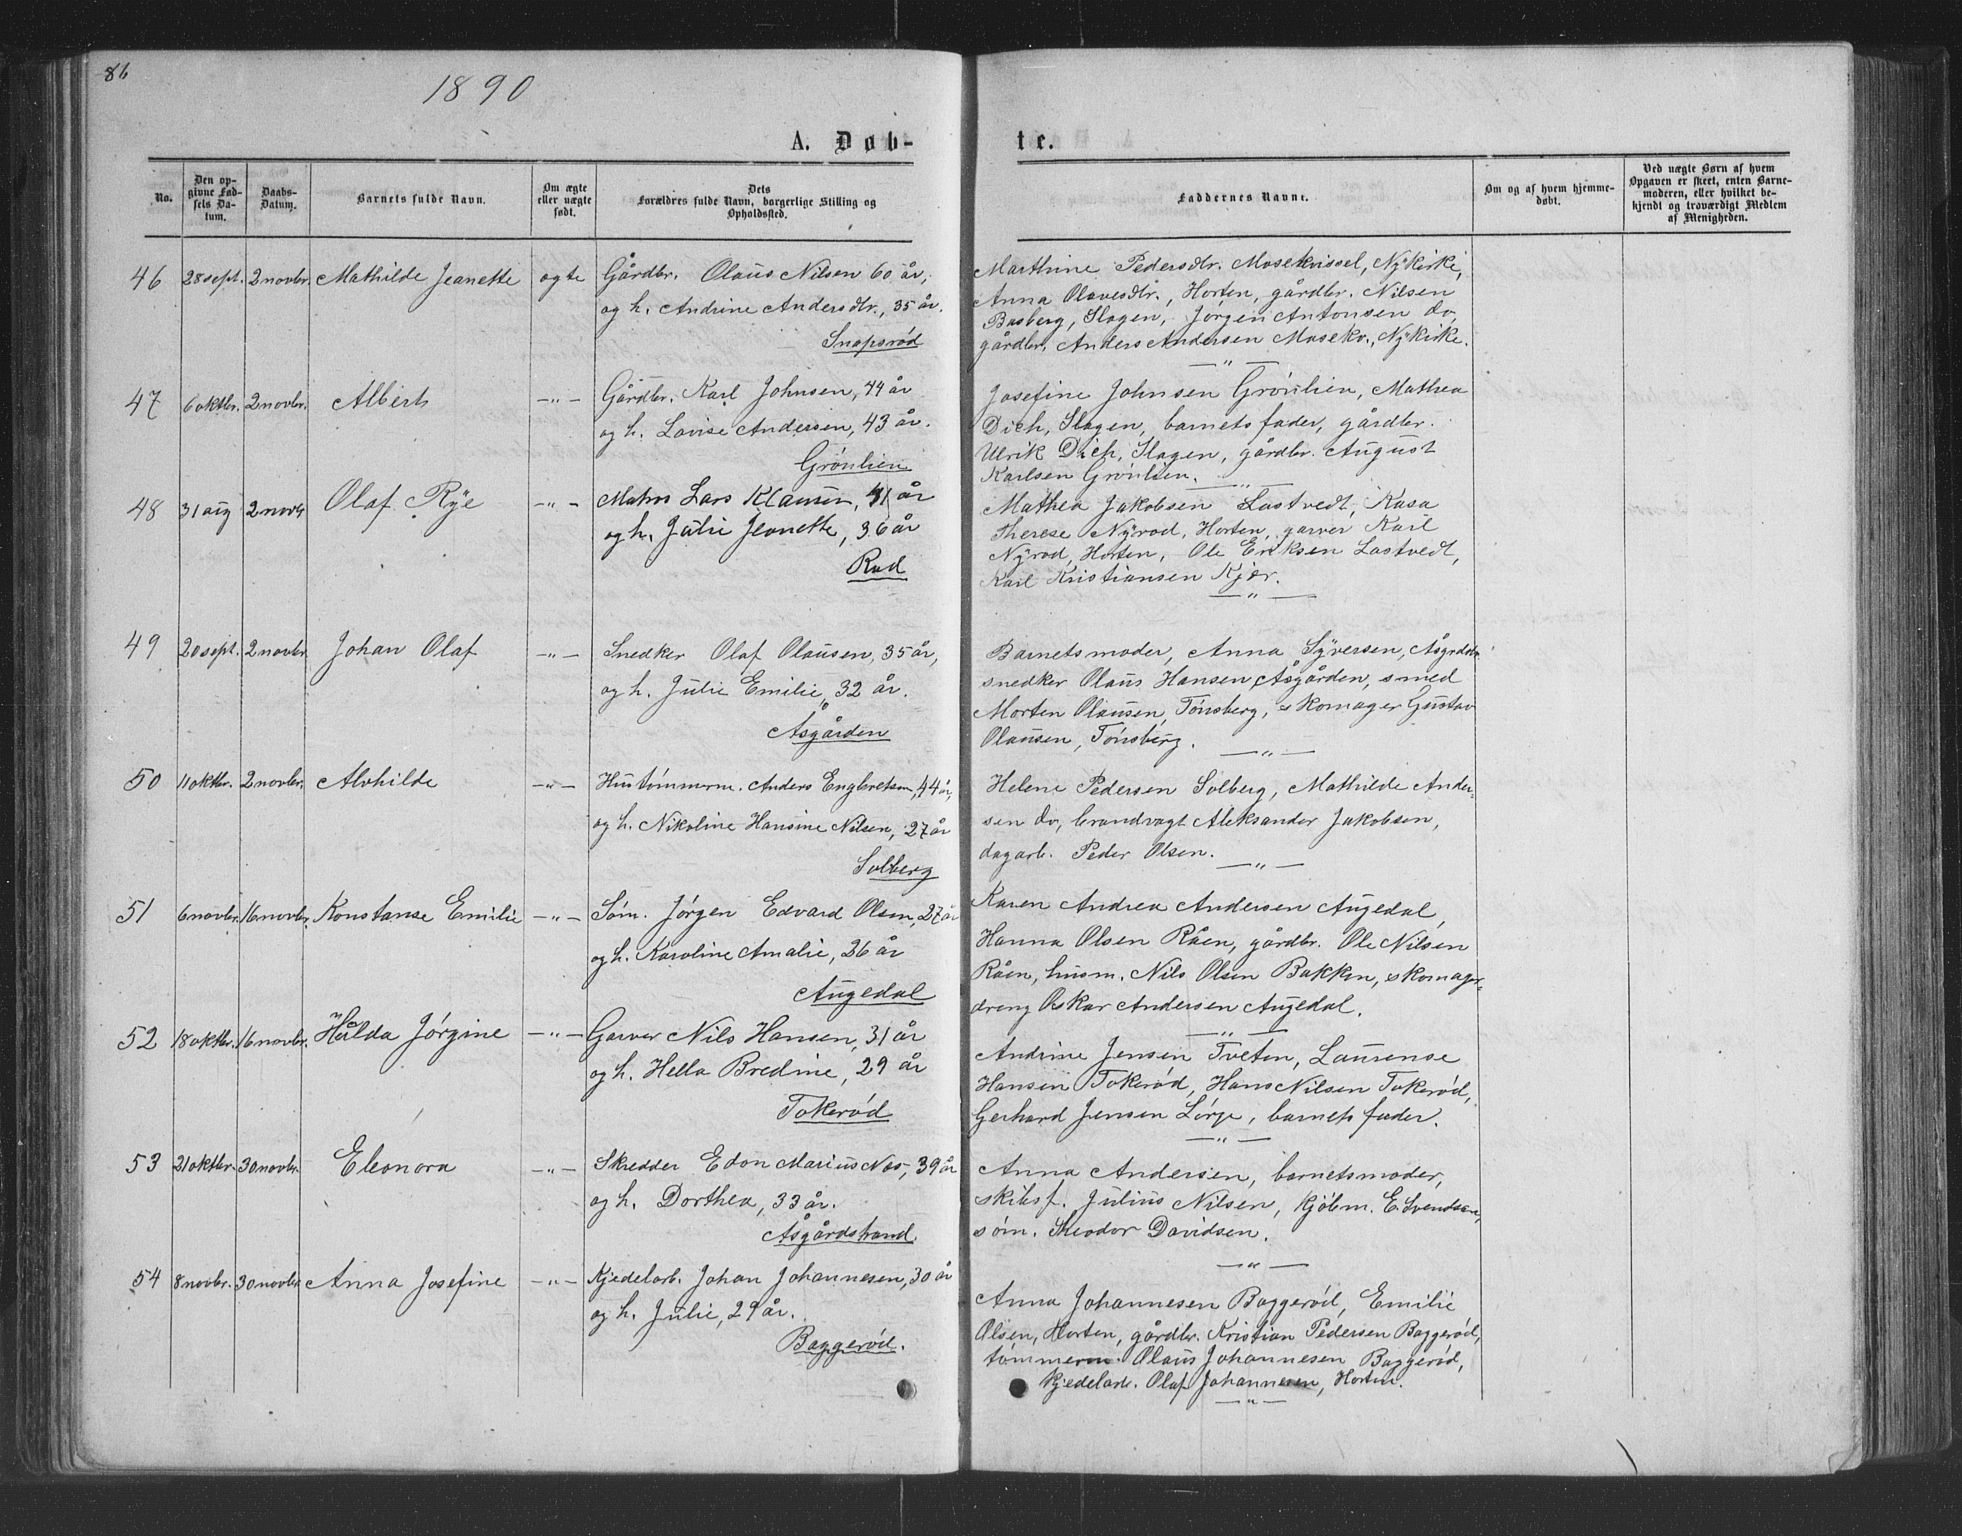 86
1890
A. Døb-
te.
No.
Den op-
givne Fød-
sels Da-
tum.
Daabs-
Datum.
Barnets fulde Navn.
Om ægte
eller uægte
født.
Dets
Forældres fulde Navn, borgerlige Stilling og
Opholdssted.
Faddernes Navne.
Om og af hvem hjemme-
døbt.
Ved uægte Børn af hvem
Opgaven er skeet, enten Barne-
moderen, eller hvilket be-
kjendt og troværdigt Medlem
af Menigheden.
46 28 sept. 2 novbr. Mathilde Jeanette ægte Gårdbr. Olaus Nilsen 60 år,
og h. Andrine Andersdtr., 35 år.
Snapsrød
Marthine Pedersdtr. Mosekvissel, Nykirke,
Anna Olavesdtr., Horten, gårdbr. Nilsen
Basberg, Slagen, Jørgen Antonsen do,
gårdbr. Anders Andersen Mosekv., Nykirke.
— " —
47 6 oktbr. 2 novbr. Albert — " — Gårdbr. Karl Johnsen, 44 år
og h. Lovise Andersen, 43 år.
Grønlien
Josefine Johnsen Grønlien, Mathea
Dich, Slagen, barnets fader, gårdbr.
Ulrik Dich, Slagen, gårdbr. August
Karlsen Grønlien.
— " —
48 31 aug 2 novbr Olaf Rye — " — Matrs Lars Klausen, 41 år
og h. Julie Jeanette, 36 år
Rød
Mathea Jakobsen Lostvedt, Kasa
Therese Nyrød, Horten, garver Karl
Nyrød, Horten, Ole Eriksen Lostvedt,
Karl Kristiansen Kjær.
— " —
49 20 sept. 2 novbr. Johan Olaf — " — Snedker Olaf Olausen, 35 år,
og h. Julie Emilie, 32 år.
Åsgården
Barnets moder, Anna Syversen, Åsgrdstr.
snedker Olaus Hansen Åsgården, smed
Morten Olausen, Tønsberg, skomager Gustav
Olausen, Tønsberg.
— " —
50 11 oktbr. 2 novbr. Alvhilde — " — Hustømmerm. Anders Engbretsen, 44 år,
og h. Nikoline Hansine Nilsen, 27 år
Solberg
Helene Pedersen Solberg, Mathilde Ander-
sen do, brandvagt Aleksander Jakobsen,
dagarb. Peder Olsen.
— " —
51 6 novbr. 16 novbr. Konstanse Emilie — " — Søm. Jørgen Edvard Olsen, 27 år
og h. Karoline Amalie, 26 år
Augedal
Karen Andrea Andersen Augedal,
Hanna Olsen Råen, gårdbr. Ole Nilsen
Råen, husm. Nils Olsen Bakken, skomager-
dreng Oskar Andersen Augedal.
— " —
52 18 oktbr. 16 novbr. Hulda Jørgine — " — Garver Nils Hansen, 31 år
og h. Hella Bredine, 29 år
Tokerød
Andrine Jensen Tveten, Laurense
Hansen Tokerød, Hans Nilsen Tokerød,
Gerhard Jensen Lørge, barnets fader.
— " —
53 21 oktbr. 30 novbr. Eleonora — " — Skredder Edon Marius Næs, 39 år
og h. Dorthea, 33 år.
Åsgårdstrand
Anna Andersen, barnets moder,
skibsf. Julius Nilsen, kjøbm. E. Svendsen,
søm. Theodor Davidsen.
— " —
54 8 novbr. 30 novbr. Anna Josefine — " — Kjedelarb. Johan Johannesen, 30 år
og h. Julie, 29 år.
Baggerød.
Anna Johannesen Baggerød, Emilie
Olsen, Horten, gårdbr. Kristian Pedersen Baggerød,
tømmerm. Olaus Johannesen Baggerød,
kjedelarb. Olaf Johannesen, Horten.
— " —